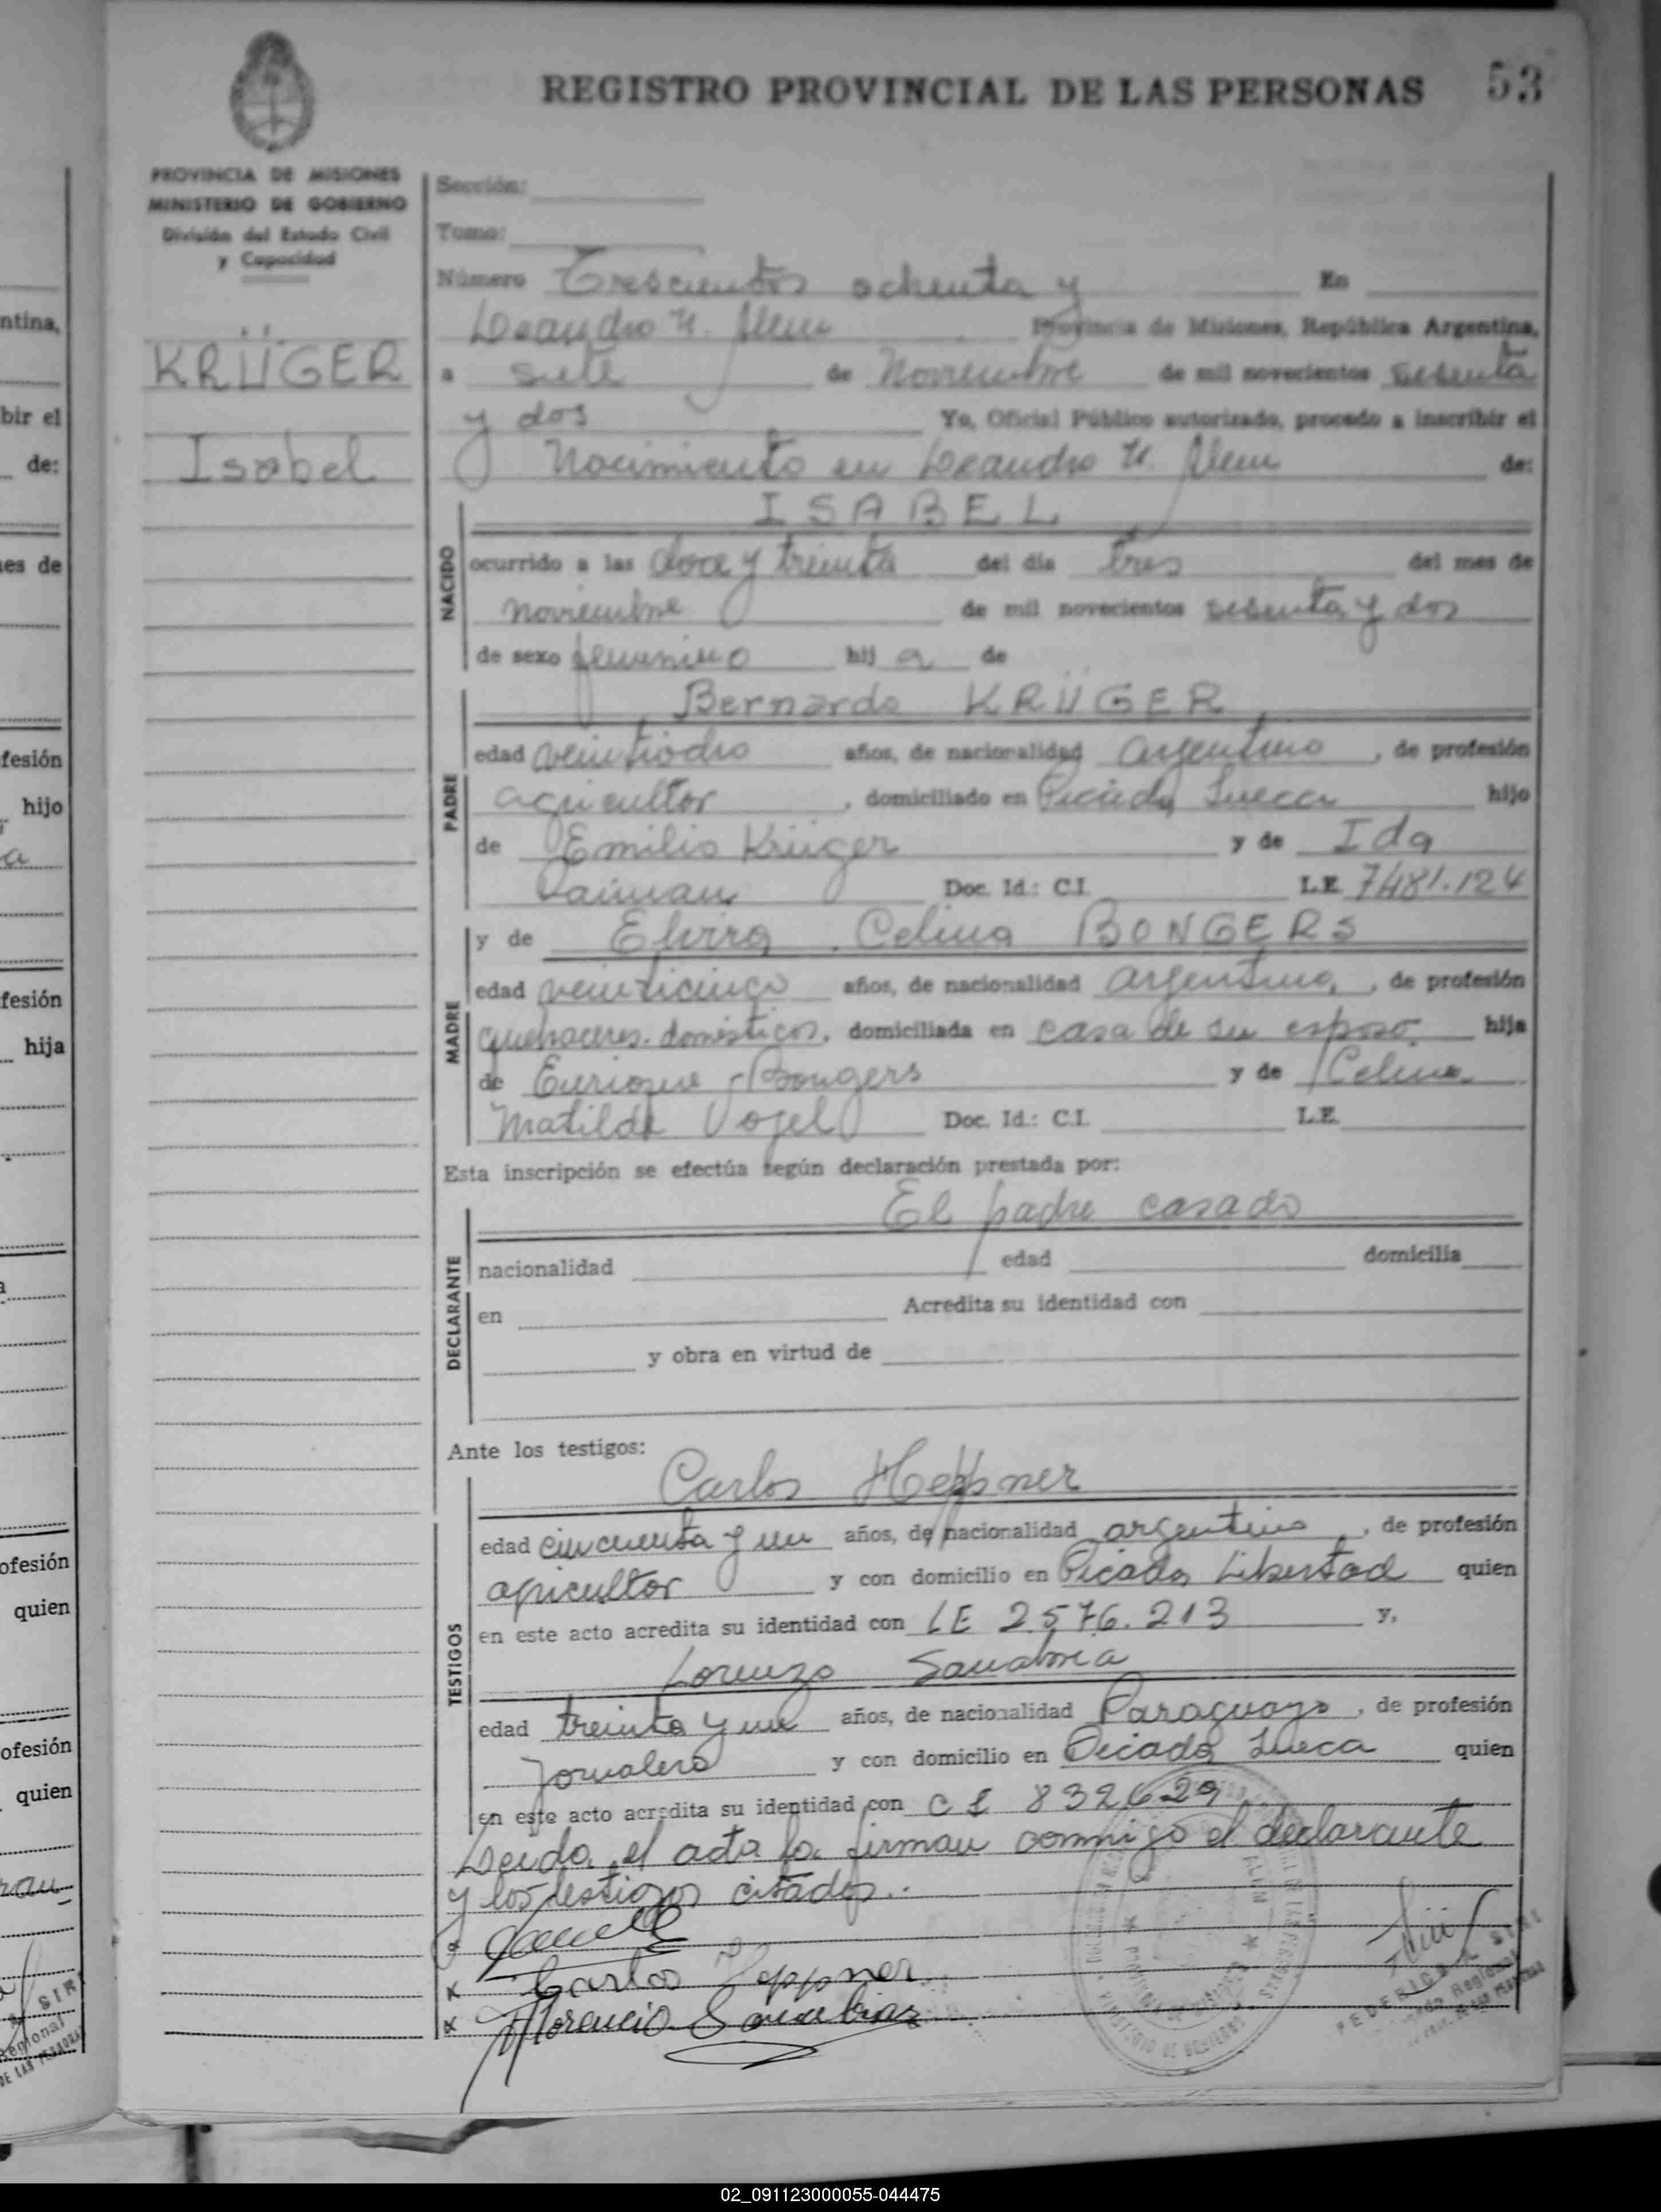 REGISTRO PROVINCIAL DE LAS PERSONAS 53
PROVINCIA DE MISIONES
MINISTERIO DE GOBIERNO
División del Estado Civil
y Capacidad
KRÜGER
Isabel
Sección:
Tomo:
Número Trescientos ochenta y En
Leandro N. Alem Provincia de Misiones, República Argentina,
a siete de Noviembre de mil novecientos sesenta
y dos Yo, Oficial Público autorizado, procedo a inscribir el
Nacimiento en Leandro N. Alem de:
ISABEL
NACIDO
ocurrido a las doce y treinta del día tres del mes de
noviembre de mil novecientos sesenta y dos
de sexo femenino hij a de
Bernardo KRÜGER
PADRE
edad veintiocho años, de nacionalidad argentino, de profesión
agricultor, domiciliado en Picada Sueca hijo
de Emilio Krüger y de Ida
Doc. Id.: C.I. L.E. 7481.124
MADRE
y de Elvira Celina BONGERS
edad veinticinco años, de nacionalidad argentina, de profesión
quehaceres domésticos, domiciliada en casa de su esposo. hija
de Enrique Bongers y de Celina
Matilde Vogel Doc. Id.: C.I. L.E.
Esta inscripción se efectúa según declaración prestada por:
El padre casado
DECLARANTE
nacionalidad edad domicilia
en Acredita su identidad con
y obra en virtud de
Ante los testigos:
Carlos Heppner
TESTIGOS
edad cincuenta y un años, de nacionalidad argentino, de profesión
agricultor y con domicilio en Picada Libertad quien
en este acto acredita su identidad con LE 2.576.213 y,
Lorenzo Sanabria
edad treinta y un años, de nacionalidad Paraguayo, de profesión
Jornalero y con domicilio en Picada Sueca quien
en este acto acredita su identidad con C I 832629
Leida el acta la firman conmigo el declarante
y los testigos citados.
x Carlos Heppner
x Florencio Sanabria
ntina,
bir el
de:
nes de
fesión
hijo
a
fesión
hija
ofesión
quien
ofesión
quien
02_091123000055-044475